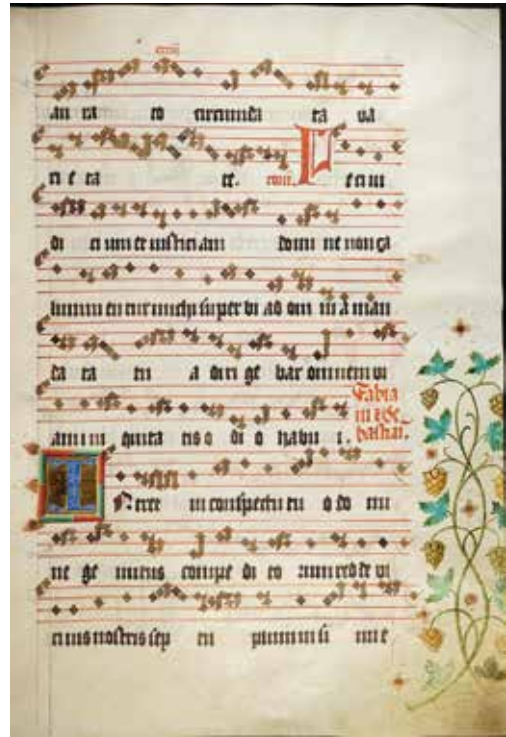 au ra to circumda ta va
ri e ta te. com. F eci iu
di ci um et iusticiam domi ne non ca
super bi ad om ni a man
da ta tu a diri ge bar omnem vi
am in iquita tis o di o habu i.
Fabia
ni et Se
bastiai.
I Ntret in conspectu tu o do mi
ne ge mitus compe di to rum redde vi
cinis nostris sep tu plum in si nu e